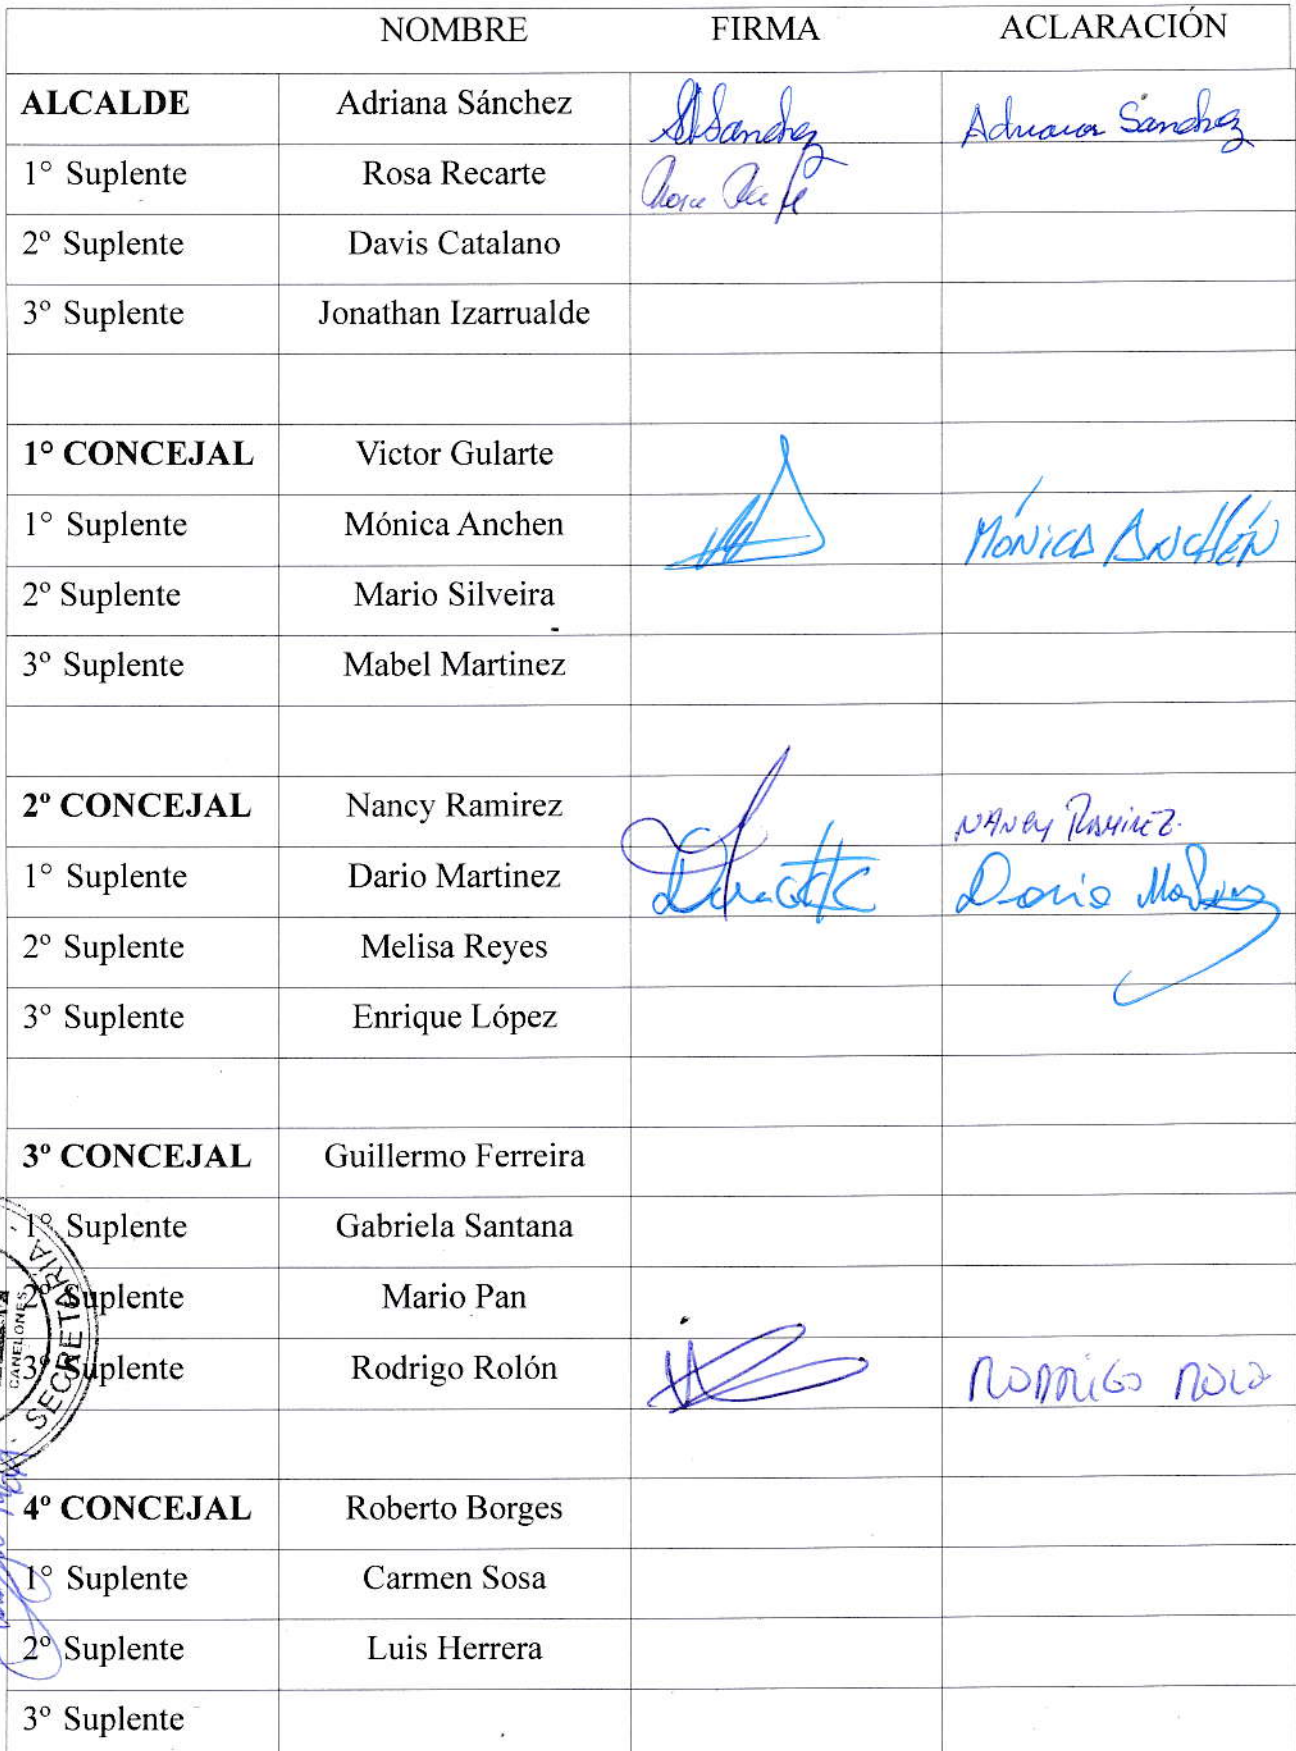 NOMBRE FIRMA ACLARACIÓN
ALCALDE Adriana Sánchez Sanchez Adriana Sanchez
1° Suplente Rosa Recarte Rosa
2º Suplente Davis Catalano
3º Suplente Jonathan Izarrualde
1º CONCEJAL Victor Gularte
1° Suplente Mónica Anchen MÓNICA ANCHÉN
2º Suplente Mario Silveira
3º Suplente Mabel Martinez
2º CONCEJAL Nancy Ramirez NANCY RAMIREZ.
1° Suplente Dario Martinez Dario Martinez
2º Suplente Melisa Reyes
3º Suplente Enrique López
3º CONCEJAL Guillermo Ferreira
1º Suplente Gabriela Santana
2º Suplente Mario Pan
3º Suplente Rodrigo Rolón RODRIGO ROLO
SECRETARIA
CANELONES
4º CONCEJAL Roberto Borges
1° Suplente Carmen Sosa
2º Suplente Luis Herrera
3º Suplente